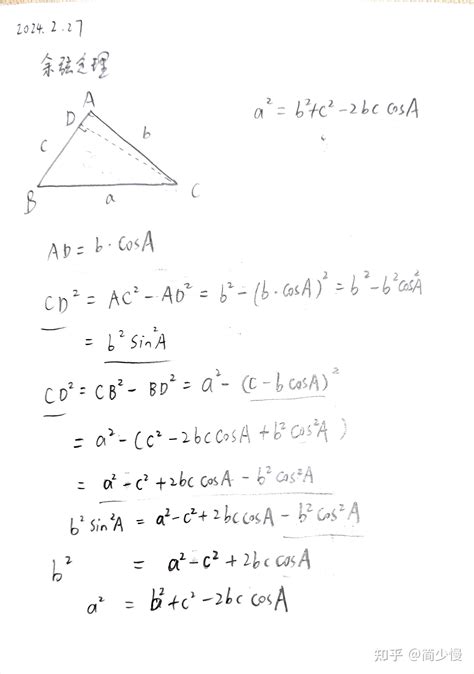 2024.2.27
余弦定理
a² = b²+c²-2bc cosA
A
D
c
b
B
a
C
AD = b·cosA
CD² = AC² - AD² = b² - (b·cosA)² = b² - b²cos²A
= b² sin²A
CD² = CB² - BD² = a² - (c - b cosA)²
= a² - (c² - 2bc cosA + b² cos²A)
= a² - c² + 2bc cosA - b² cos²A
b² sin²A = a² - c² + 2bc cosA - b² cos²A
b² = a² - c² + 2bc cosA
a² = b² + c² - 2bc cosA
知乎 @简少慢